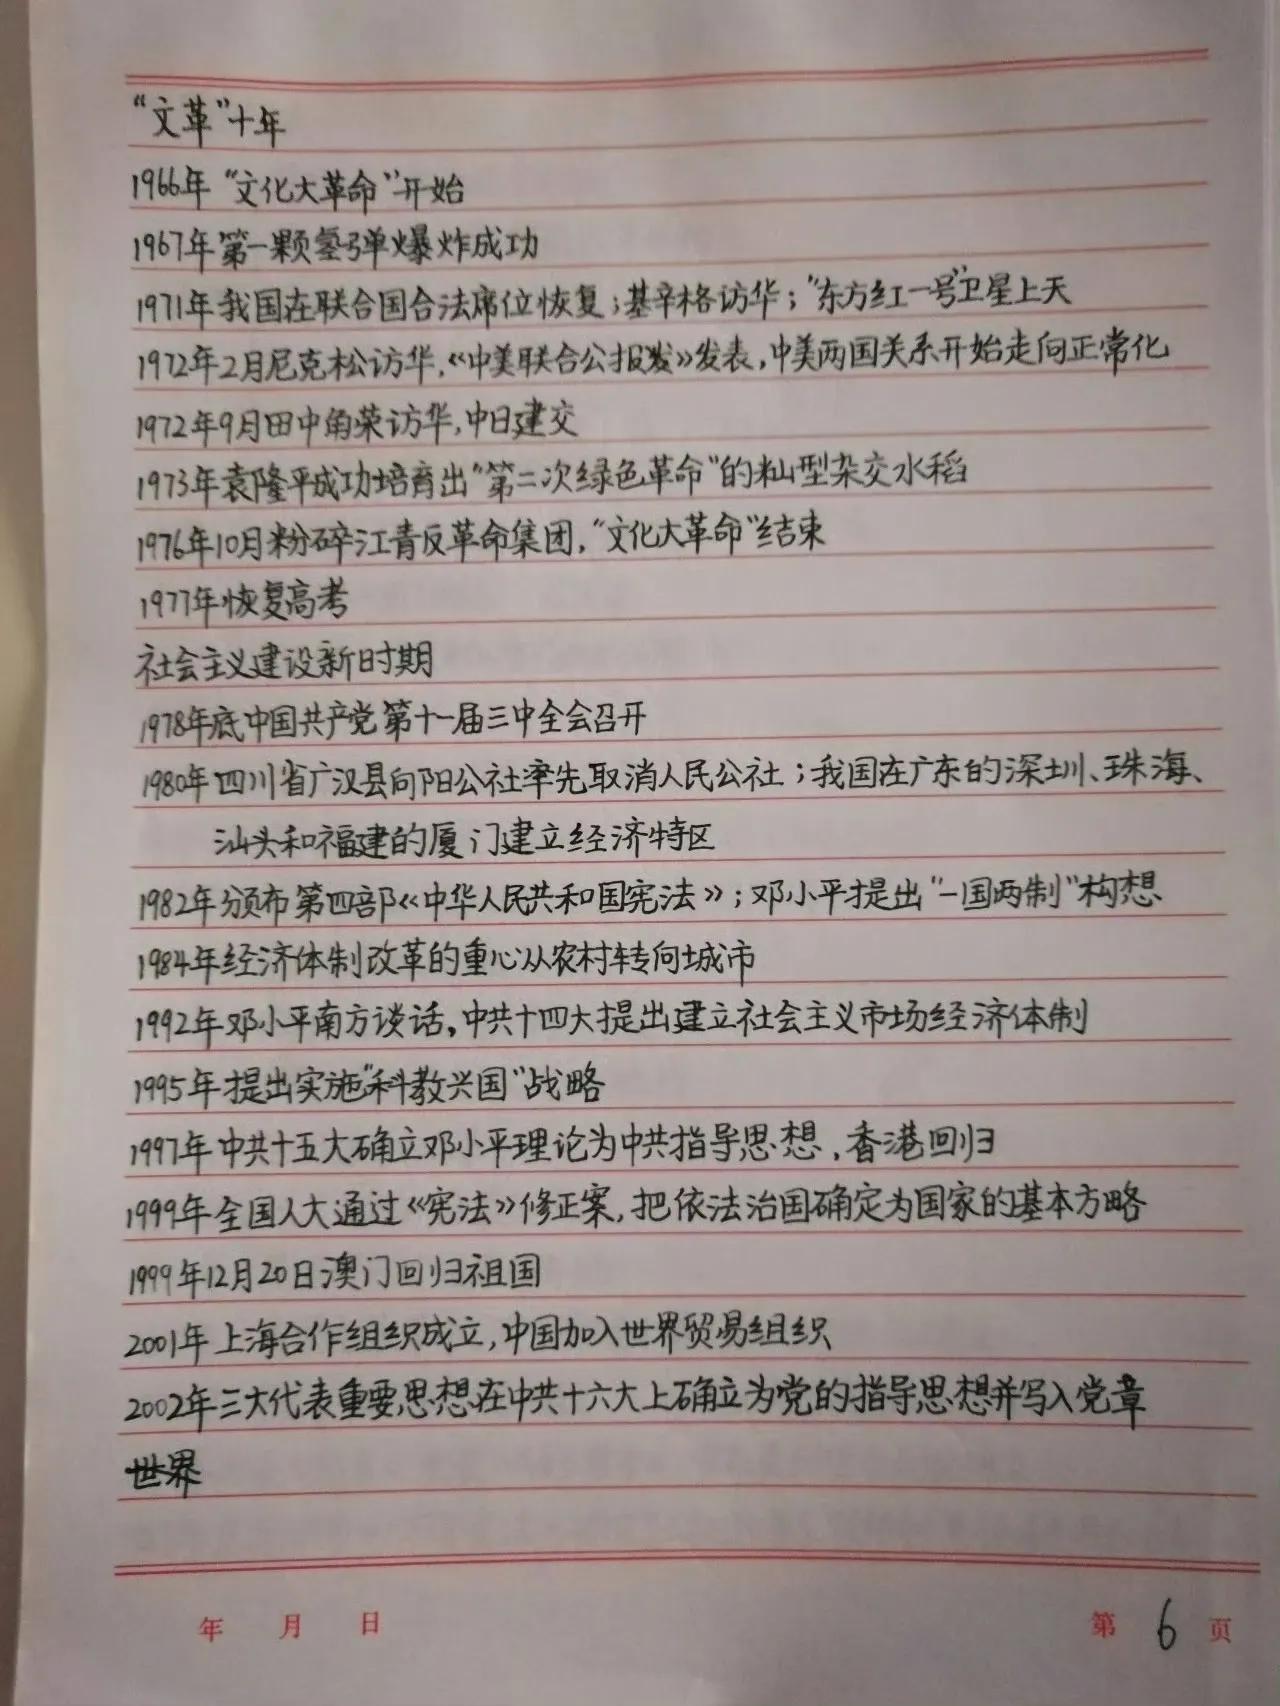 “文革”十年
1966年“文化大革命”开始
1967年第一颗氢弹爆炸成功
1971年我国在联合国合法席位恢复；基辛格访华；“东方红一号”卫星上天
1972年2月尼克松访华，《中美联合公报发》发表，中美两国关系开始走向正常化
1972年9月田中角荣访华，中日建交
1973年袁隆平成功培育出“第二次绿色革命”的籼型杂交水稻
1976年10月粉碎江青反革命集团，“文化大革命”结束
1977年恢复高考
社会主义建设新时期
1978年底中国共产党第十一届三中全会召开
1980年四川省广汉县向阳公社率先取消人民公社；我国在广东的深圳、珠海、
汕头和福建的厦门建立经济特区
1982年颁布第四部《中华人民共和国宪法》；邓小平提出“一国两制”构想
1984年经济体制改革的重心从农村转向城市
1992年邓小平南方谈话，中共十四大提出建立社会主义市场经济体制
1995年提出实施“科教兴国”战略
1997年中共十五大确立邓小平理论为中共指导思想，香港回归
1999年全国人大通过《宪法》修正案，把依法治国确定为国家的基本方略
1999年12月20日澳门回归祖国
2001年上海合作组织成立，中国加入世界贸易组织
2002年三大代表重要思想在中共十六大上确立为党的指导思想并写入党章
世界
年 月 日 第 6 页